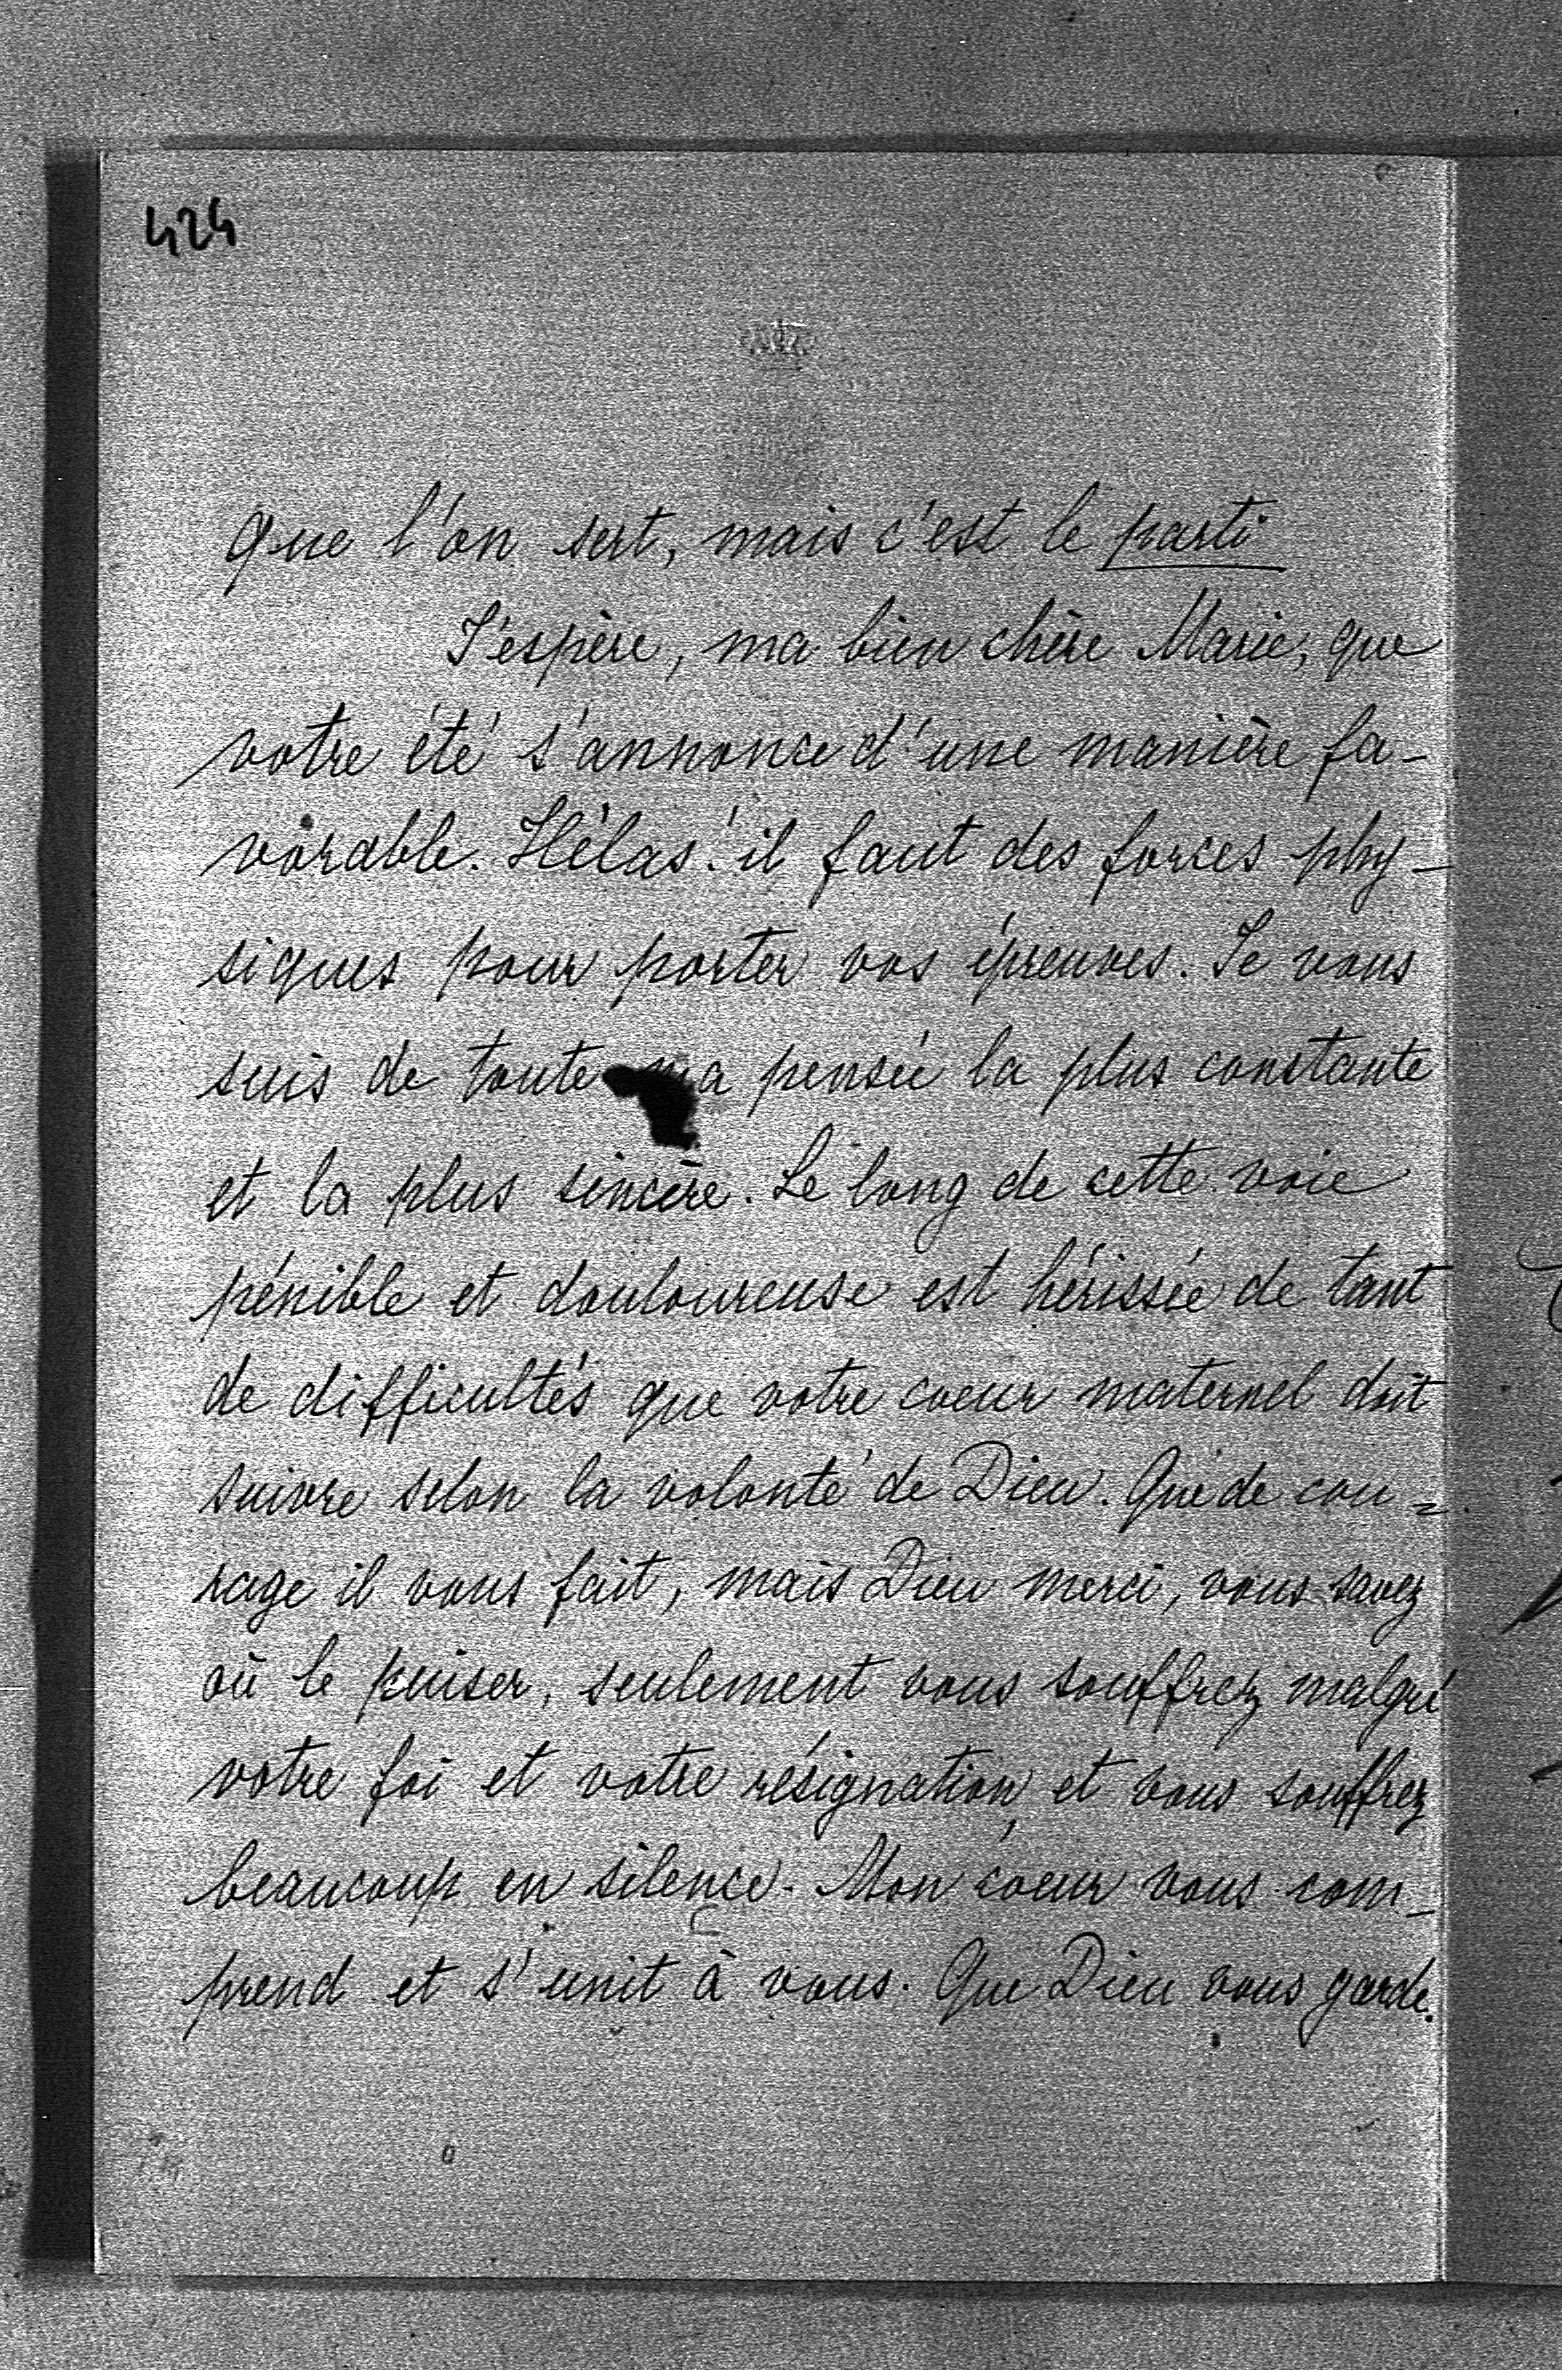 424
que l'on sert, mais c'est le parti
J'espère, ma bien chère Marie, que
votre été s'annonce d'une manière fa-
vorable. Hélas! il faut des forces phy-
siques pour porter vos épreuves. Je vous
suis de toute ma pensée la plus constante
et la plus sincère. Le long de cette voie
pénible et douloureuse est hérissée de tant
de difficultés que votre coeur maternel doit
suivre selon la volonté de Dieu. Que de cou=
rage il vous fait, mais Dieu merci, vous savez
où le puiser, seulement vous souffrez malgré
votre foi et votre résignation, et vous souffrez
beaucoup en silence. Mon coeur vous com-
prend et s'unit à vous. Que Dieu vous garde.